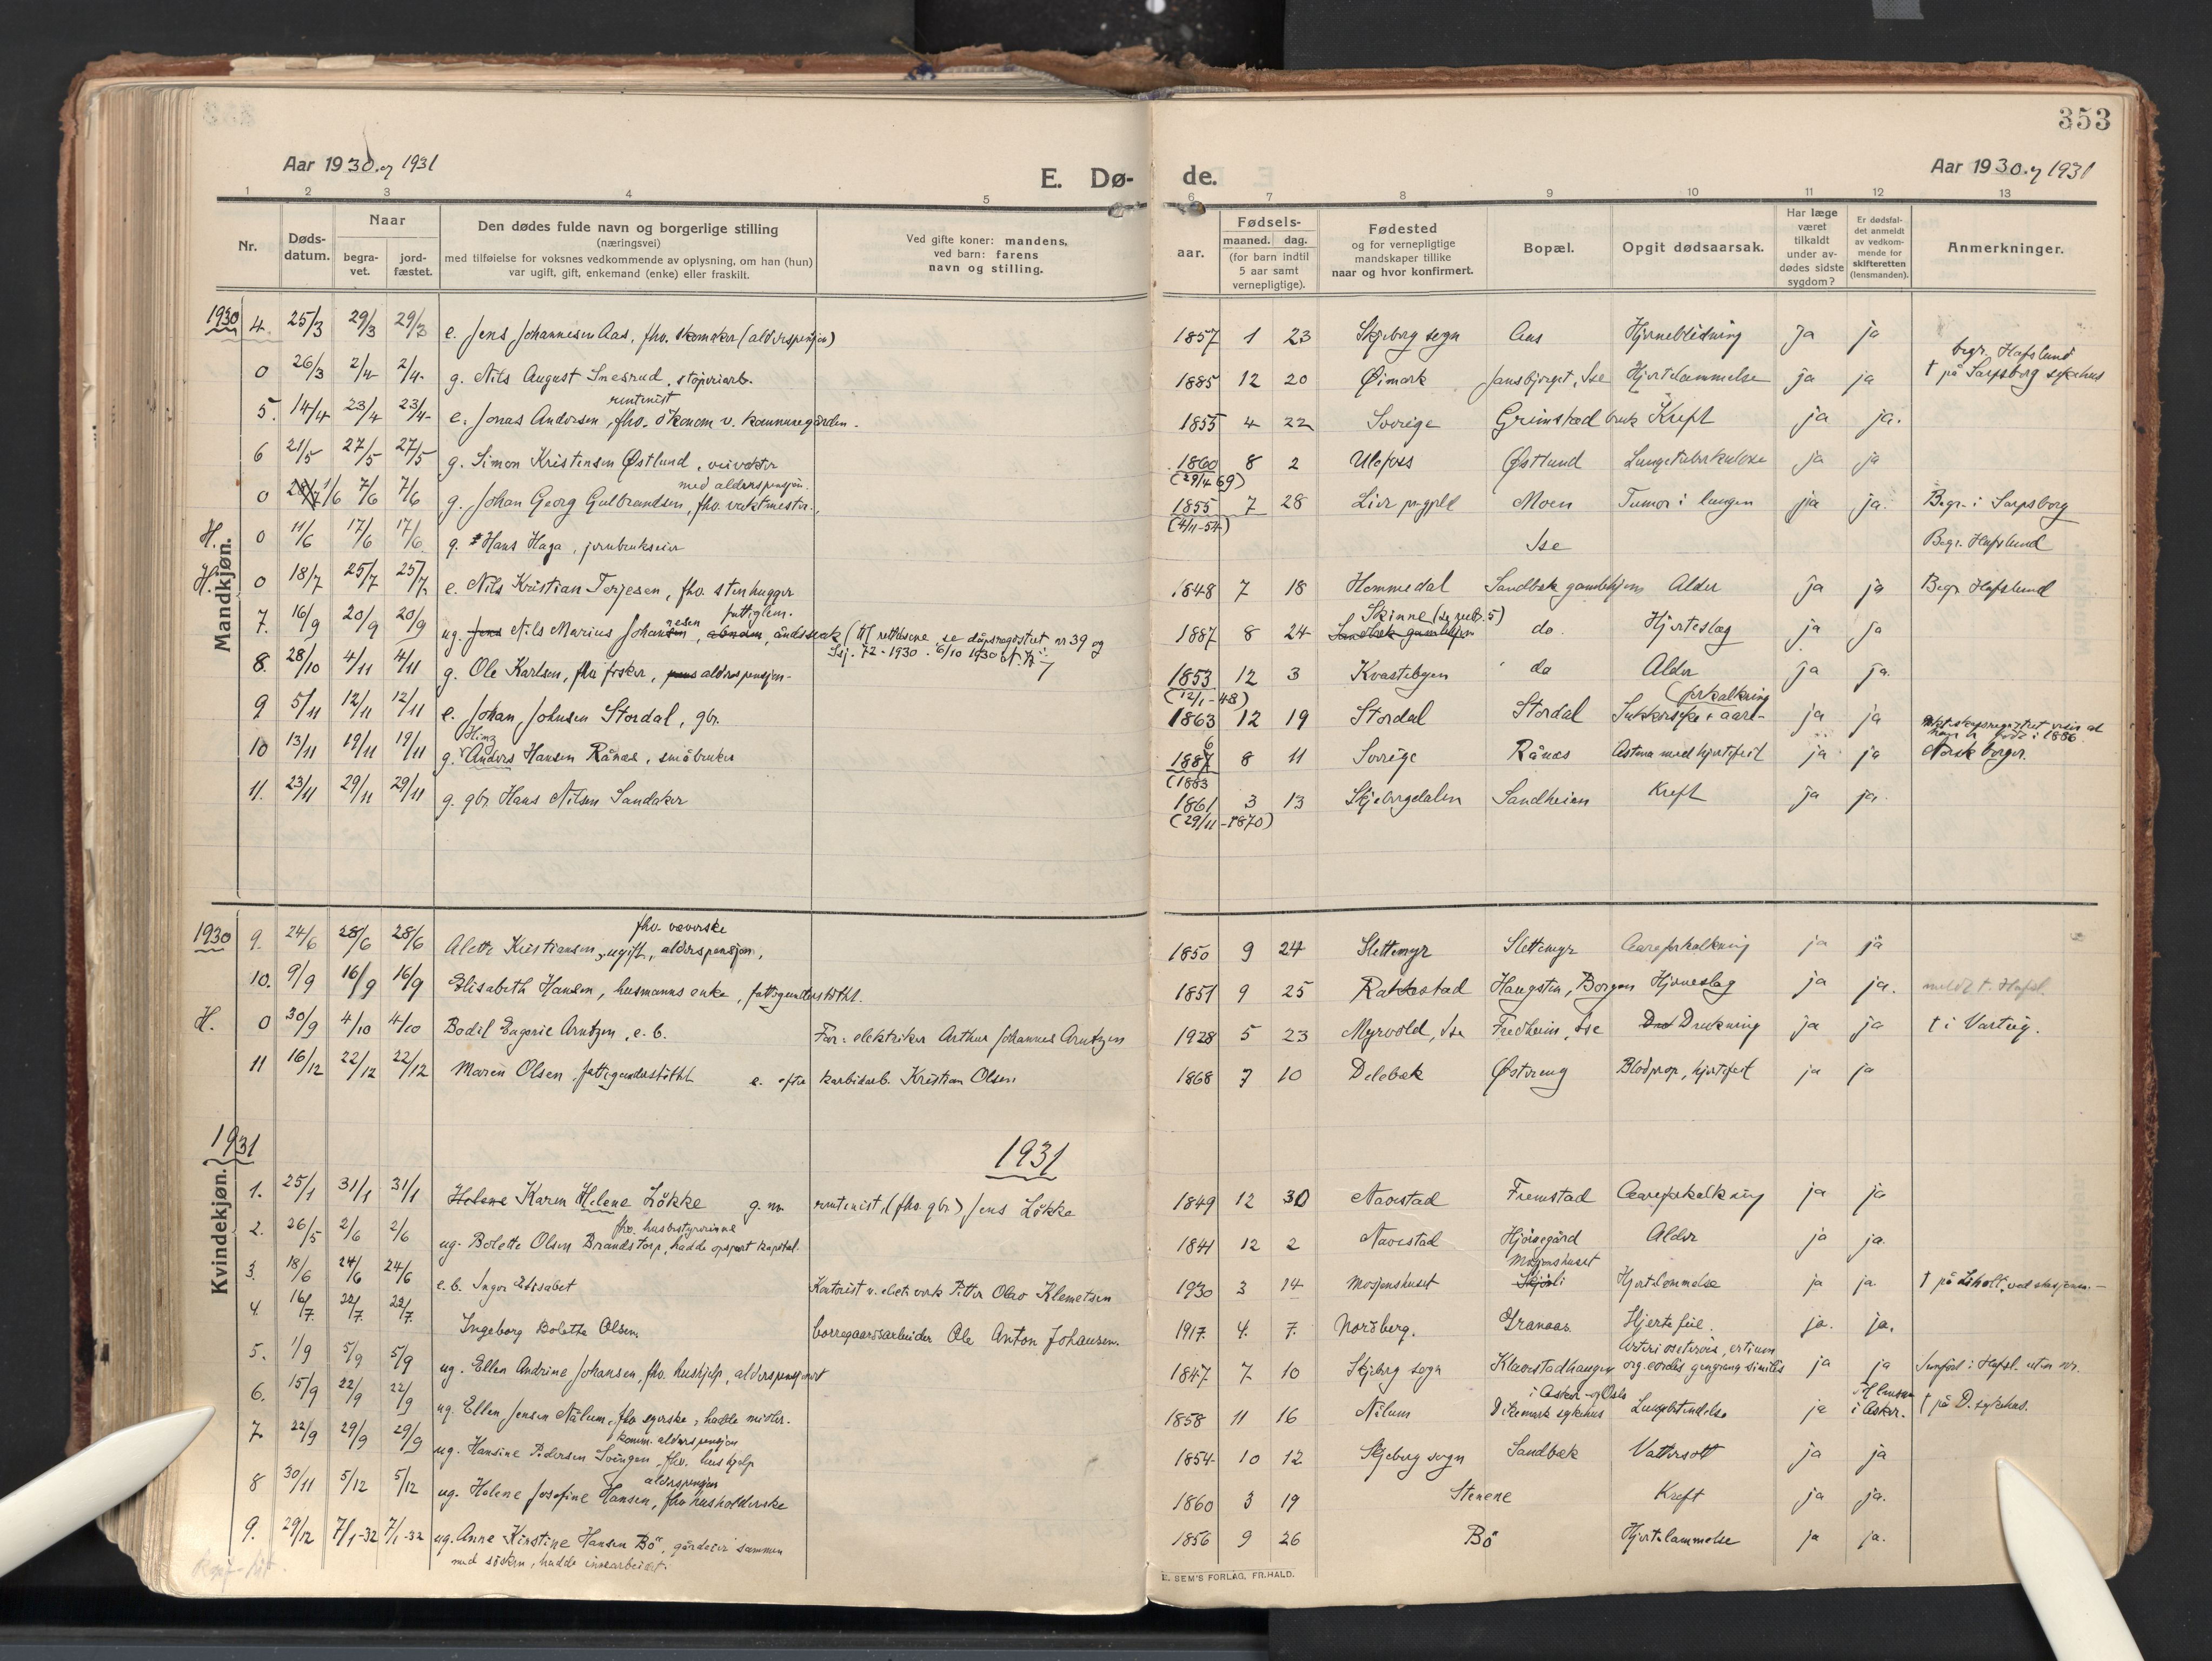 353
Aar 1930 og 1931
E. Dø-
de.
Aar 1930 og 1931
1 2 3 4 5 6 7 8 9 10 11 12 13
Nr.
Døds-
datum.
Naar
begra-
vet.
jord-
fæstet.
Den dødes fulde navn og borgerlige stilling
(næringsvei)
med tilføielse for voksnes vedkommende av oplysning, om han (hun)
var ugift, gift, enkemand (enke) eller fraskilt.
Ved gifte koner: mandens,
ved barn: farens
navn og stilling.
Fødsels-
aar.
maaned. dag.
(for barn indtil
5 aar samt
vernepligtige).
Fødested
og for vernepligtige
mandskaper tillike
naar og hvor konfirmert.
Bopæl.
Opgit dødsaarsak.
Har læge
været
tilkaldt
under av-
dødes sidste
sygdom?
Er dødsfal-
det anmeldt
av vedkom-
mende for
skifteretten
(lensmanden).
Anmerkninger.
Mandkjøn.
1930 4. 25/3 29/3 29/3 e. Jens Johannesen Aas, fhv. skomaker (alderspensjon) 1857 1 23 Skjeberg sogn Aas Hjerneblødning ja ja
0 26/3 2/4 2/4 g. Nils August Snesrud, støperiarb. 1885 12 20 Øimark Jansbjerget, Ise Hjertelammelse ja ja begr. Hafslund
† på Sarpsborg sykehus
rentenist
5. 14/4 23/4 23/4 e. Jonas Andersen, fhv. økonom v. kommunegården. 1855 4 22 Sverige Grimstad bruk Kreft ja ja.
6 21/5 27/5 27/5 g. Simon Kristensen Østlund, veivokter 1860 8 2 Ulefoss Østlund Lungetuberkulose ja ja
(29/4 69)
med alderspensjon.
0 1/6 7/6 7/6 g. Johan Georg Gulbrandsen, fhv. vaktmester, 1855 7 28 Lier prgjeld Moen Tumor i lungen ja ja. Begr. i Sarpsborg
(4/11-54)
H. 0 11/6 17/6 17/6 g. Hans Haga, jernbrukseier Ise Begr. Hafslund
H. 0 18/7 25/7 25/7 e. Nils Kristian Terjesen, fhv. stenhugger 1848 7 18 Hommedal Sandbæk gamlehjem Alder ja ja Begr. Hafslund
fattiglem.
7. 16/9 20/9 20/9 ug. Jens Nils Marius Johannesen, åndssvak (til rettelsene se dåpsregistret nr 39 og 1887 8 24 Skinne Sandbæk gamlehjem do. Hjerteslag ja ja
72-1930. 6/10 1930
8. 28/10 4/11 4/11 g. Ole Karlsen, fhv. fisker, alderspensjon- 1853 12 3 Kvastebyen do Alder ja ja.
(12/1-48)
9 5/11 12/11 12/11 e. Johan Johnsen Stordal, gbr. 1863 12 19 Stordal Stordal Sukkersyke + aare-
forkalkning ja ja
10 13/11 19/11 19/11 g. Anders Hansen Rånæs, småbruker 1887 8 11 Sverige Rånæs Astma med hjertefeil ja ja Norsk borger.
(1883
11. 23/11 29/11 29/11 g. gbr. Hans Nilsen Sandaker 1861 3 13 Skjebergdalen Sandheien Kreft ja ja.
(29/11-1870)
Kvindekjøn.
fhv. væverske
1930 9. 24/6 28/6 28/6 Alette Kristiansen, ugift, alderspensjon, 1850 9 24 Slettemyr Slettemyr Aareforkalkning ja ja
10. 9/9 16/9 16/9 Elisabeth Hansen, husmanns enke, fattigunderstøttet. 1851 9 25 Rakkestad Haugsten, Borgen Hjerneslag ja ja. meldt t. Hafsl.
H. 0 30/9 4/10 4/10 Bodil Eugenie Arntzen, e. b. Far: elektriker Arthur Johannes Arntzen 1928 5 23 Myrvold, Ise Fredheim, Ise Drukning ja ja † i Varteig.
11 16/12 22/12 22/12 Maren Olsen, fattigunderstøttet e. efter karbidarb. Kristian Olsen 1868 7 10 Delebæk Østereng Blodprop, hjertefeil ja ja
1931
1931
1. 25/1 31/1 31/1 Helene Karen Helene Løkke g. m. rentenist, (fhv. gbr.) Jens Løkke 1849 12 30 Navestad Fremstad Aareforkalkning ja ja
fhv. husbestyrerinne
2. 26/5 2/6 2/6 ug. Bolette Olsen Brandstorp, hadde opspart kapital. 1841 12 2 Navestad Hjørnegård Alder ja ja.
Mosjonshuset
3. 18/6 24/6 24/6 e. b. Inger Elisabet Kontorist v. elektr. verk Petter Olav Klemetsen 1930 3 14 Mosjonshuset Hjertelammelse ja ja
4. 16/7. 22/7. 22/7. Ingeborg Bolette Olsen. borregaardsarbeider Ole Anton Johansen. 1917. 4. 7. Norsberg. Granaas. Hjertefeil. ja. ja.
5. 1/9 5/9 5/9 ug. Ellen Andrine Johansen, fhv. hushjelp, alderspensjonert 1847 7 10 Skjeberg sogn Klavestadhaugen org. cordis gangræna senilis ja ja
i Asker og Oslo
6. 15/9 22/9 22/9 ug. Ellen Jensen Nålum, fhv. syerske, hadde midler. 1858 11 16 Nålum Dikemark sykehus Lungebetendelse ja i Asker. † på D. sykehus.
komm. alderspensjon
7. 22/9 29/9 29/9 ug. Hansine Pedersen Svingen, fhv. hushjelp 1854 10 12 Skjeberg sogn Sandbæk Vattersott ja ja
alderspensjon
8 30/11 5/12 5/12 ug. Helene Josefine Hansen, fhv. husholderske 1860 3 19 Stenene Kreft ja ja.
9. 29/12 7/1-32 7/1-32 ug. Anne Kirstine Hansen Bø, gårdeier sammen
med søsken, hadde innearbeidet. 1856 9 26 Bø Hjertelammelse ja ja.
E. SEM'S FORLAG, FR.HALD.